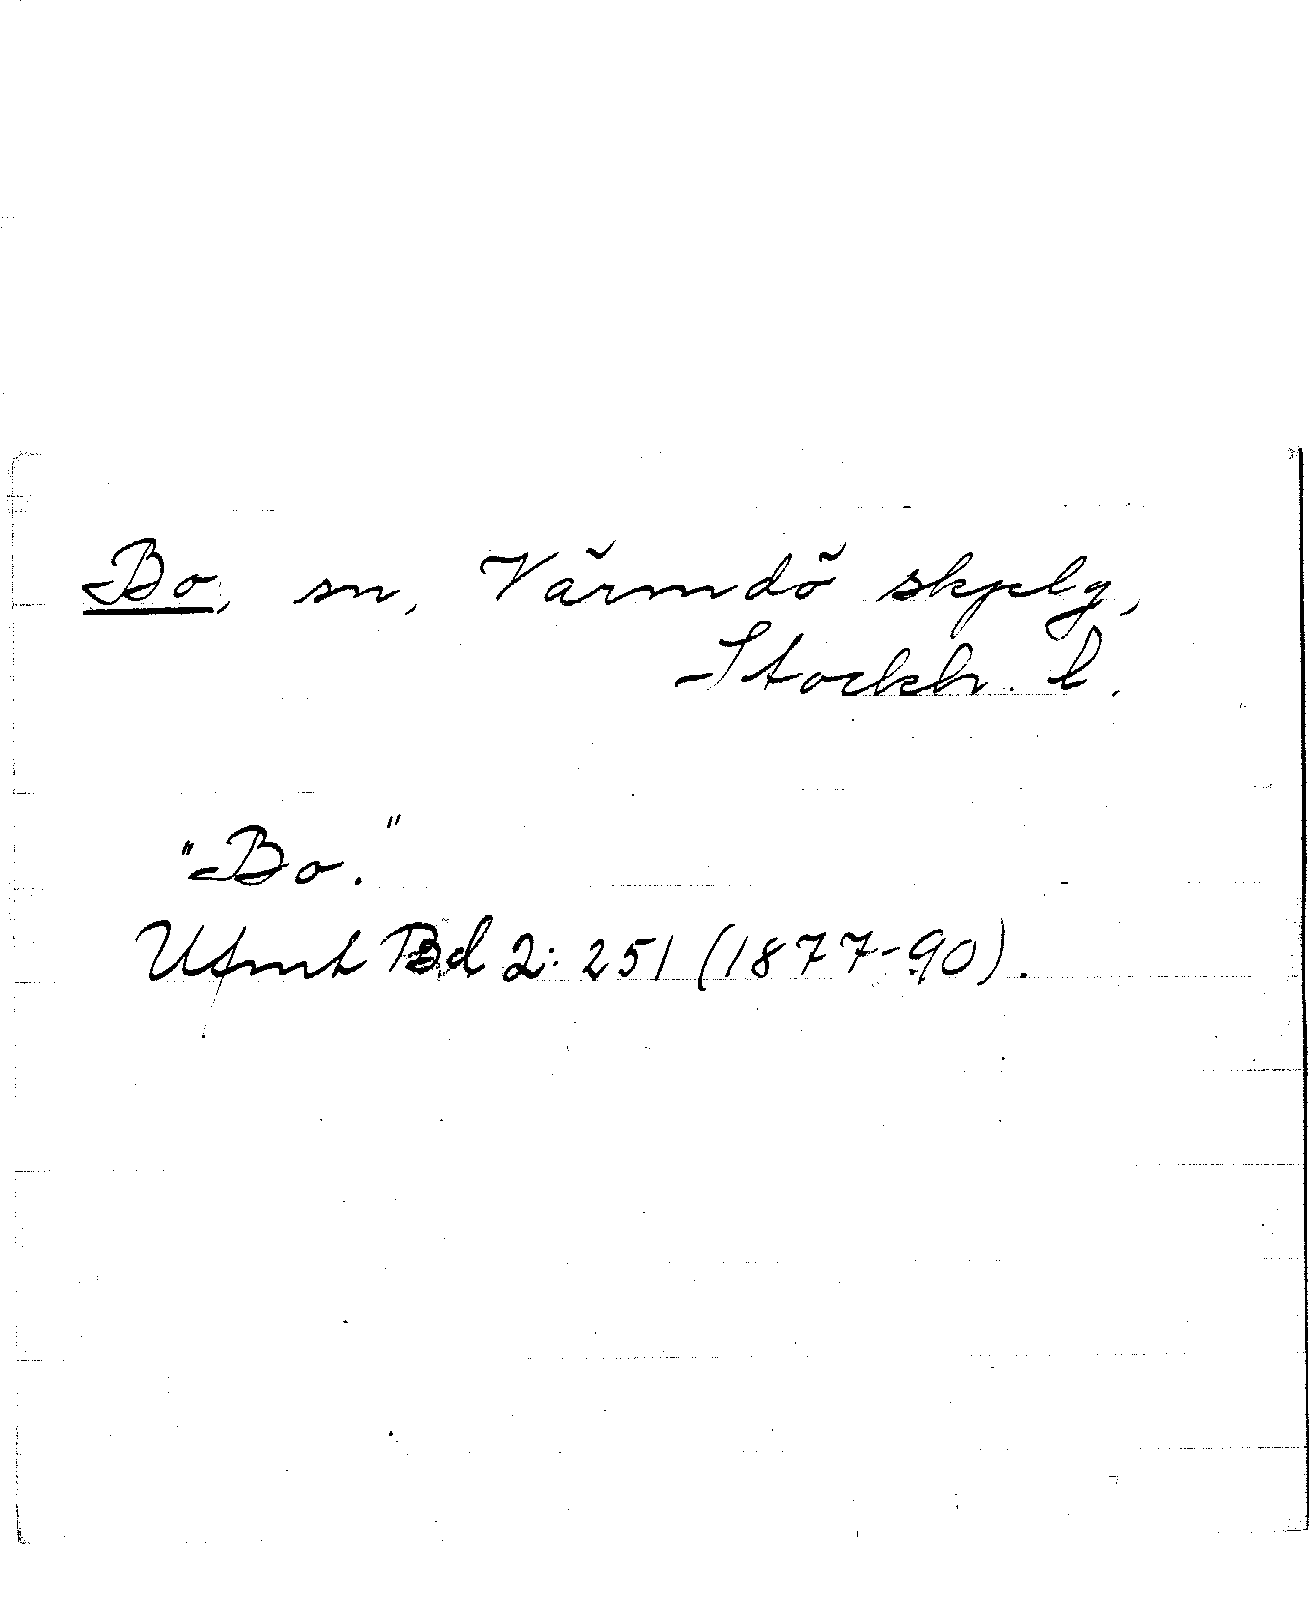 Bo, sn, Värmdö skplg,
Stockh. l.
"Bo."
Ufmt Bd 2: 251 (1877-90).